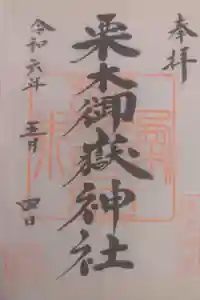 奉拝
栗木御嶽神社
令和六年
三月
四日